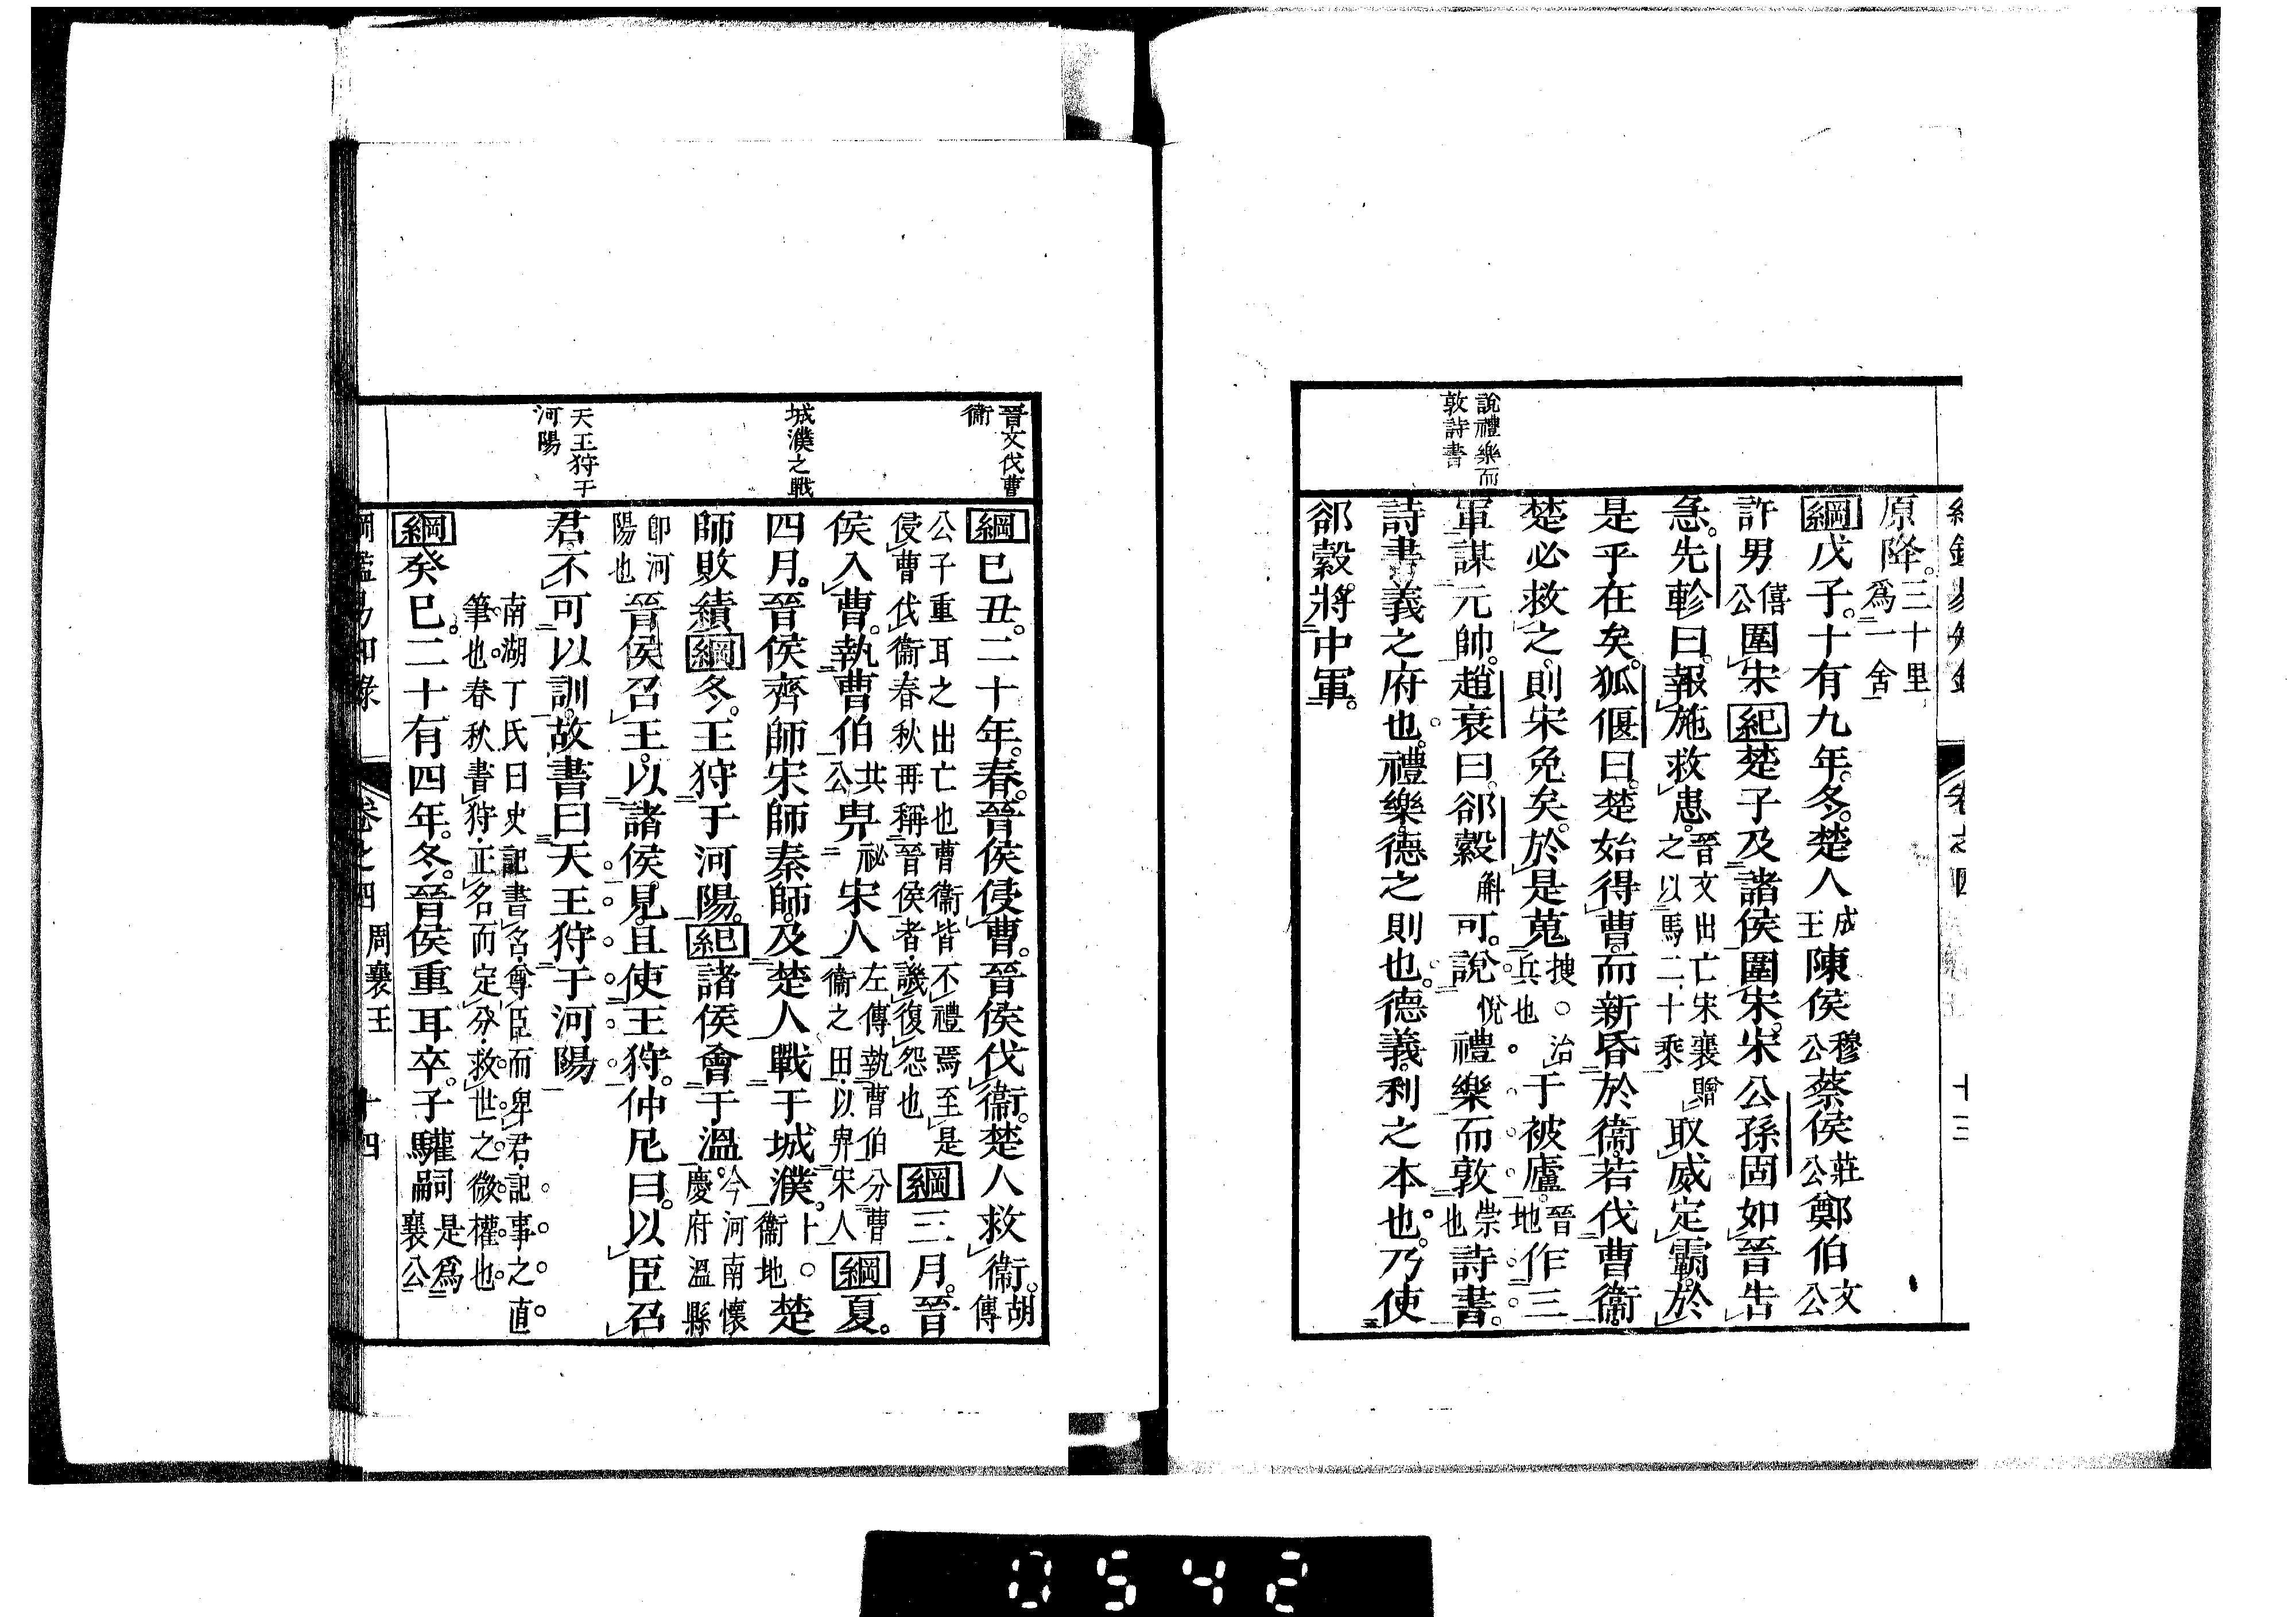 原降。三十里爲一舍
綱戊子。十有九年。冬。楚人成王陳侯穆公蔡侯莊公鄭伯文公
許男僖公圍宋紀楚子及諸侯圍宋。宋公孫固如晉告
急。先軫曰。報施救患。晉文出亡宋襄贈之以馬二十乘取威定霸。於
是乎在矣。狐偃曰。楚始得曹。而新昏於衞。若伐曹衞。
楚必救之。則宋免矣。於是蒐搜○治兵也于被廬。晉地作三
軍。謀元帥。趙衰曰。郤縠斛可。說悅禮樂而敦崇也詩書。
詩書義之府也。禮樂。德之則也。德義。利之本也。乃使
郤縠。將中軍。
說禮樂而
敦詩書
卷之四
綱巳丑。二十年。春。晉侯侵曹。晉侯伐衞。楚人救衞。胡傳
公子重耳之出亡也曹衞皆不禮焉至是侵曹伐衞春秋再稱晉侯者譏復怨也綱三月。晉
侯入曹。執曹伯共公畀祕宋人左傳執曹伯分曹衞之田以畀宋人綱夏。
四月。晉侯齊師宋師秦師。及楚人戰于城濮。上○衞地楚
師敗績綱冬。王狩于河陽。紀諸侯會于溫。今河南懷慶府溫縣
卽河陽也晉侯召王。以諸侯。見。且使王狩。仲尼曰。以臣召
君。不可以訓。故書曰天王狩于河陽
南湖丁氏曰史記書名尊臣而卑君記事之直
筆也。春秋書狩正名而定分救世之微權也
綱癸巳。二十有四年。冬。晉侯重耳卒。子驩嗣是爲襄公
晉文伐曹
衞
城濮之戰
天王狩于
河陽
綱鑑易知錄 卷之四 周襄王 十四
0542